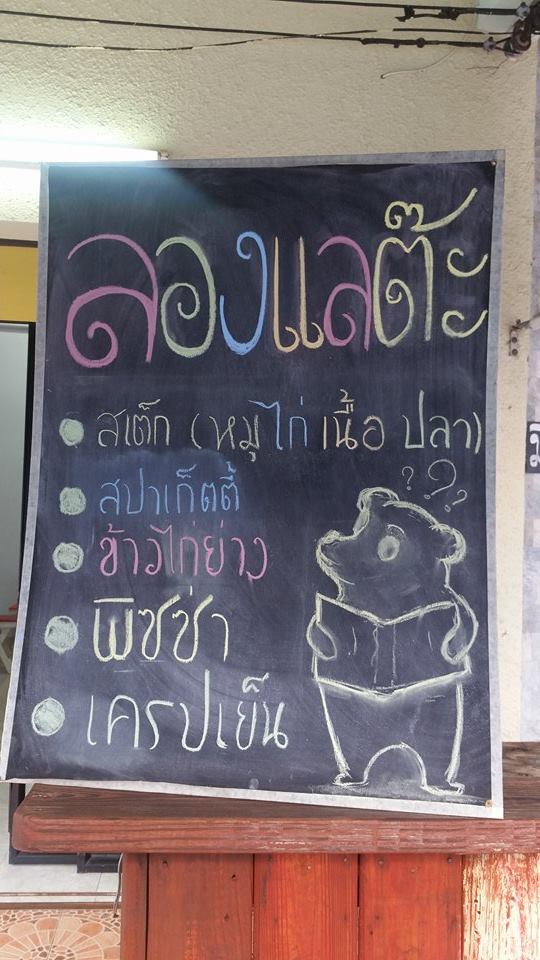 ลองแลต๊ะ
สเต็ก (หมู ไก่ เนื้อ ปลา)
สปาเก็ตตี้
ข้าวไก่ย่าง
พิซซ่า
เครปเย็น
???